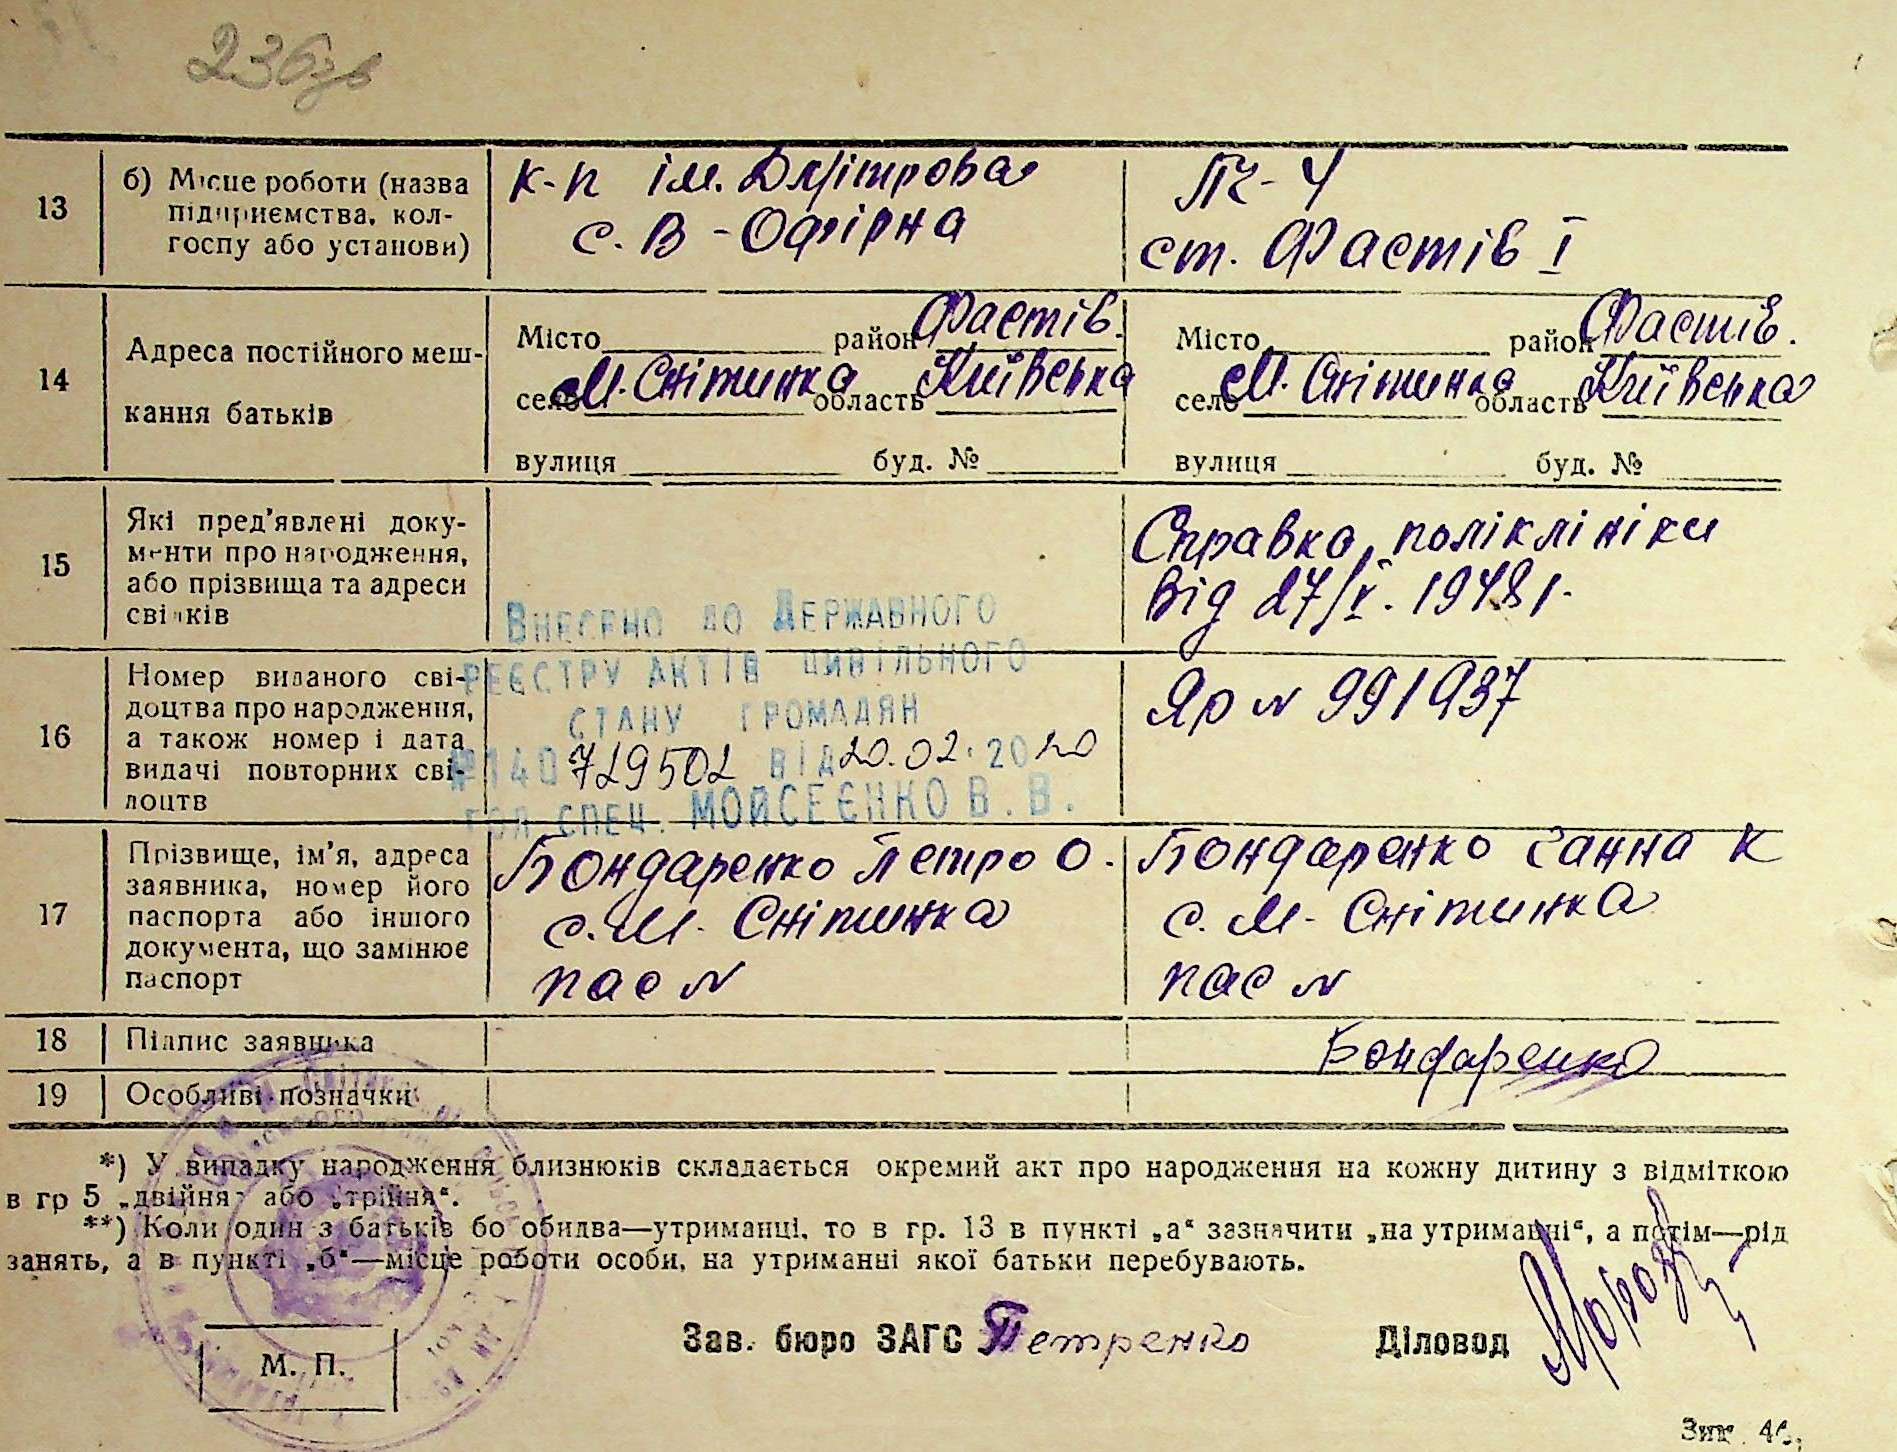 236зв
13
б) Місце роботи (назва
підприємства, кол-
госпу або установи)
к-п ім. Дмітрова
с. В-Офірна
ПЧ-4
ст. Фастів I
14
Адреса постійного меш-
кання батьків
Місто район Фастів.
село М. Снітинка область Київська
вулиця буд. №
Місто район Фастів.
село М. Снітинка область Київська
вулиця буд. №
15
Які пред'явлені доку-
менти про народження,
або прізвища та адреси
свідків
Справка поліклініки
від 27/V. 1948 г.
Внесено до Державного
реєстру актів цивільного
стану громадян
№ 140 729502 від 20.02.2020
гол спец. Мойсеєнко В.В.
16
Номер виданого сві-
доцтва про народження,
а також номер і дата
видачі повторних сві-
доцтв
Яр № 991937
17
Прізвище, ім'я, адреса
заявника, номер його
паспорта або іншого
документа, що замінює
паспорт
Бондаренко Петро О.
с. М. Снітинка
пас №
Бондаренко Ганна К
с. М. Снітинка
пас №
18
Підпис заявника
Бондаренко
19
Особливі позначки
*) У випадку народження близнюків складається окремий акт про народження на кожну дитину з відміткою
в гр 5 „двійня" або „трійня".
**) Коли один з батьків бо обидва—утриманці, то в гр. 13 в пункті „а" зазначити „на утриманні", а потім—рід
занять, а в пункті „б"—місце роботи особи, на утриманні якої батьки перебувають.
Зав. бюро ЗАГС Петренко
Діловод
М. П.